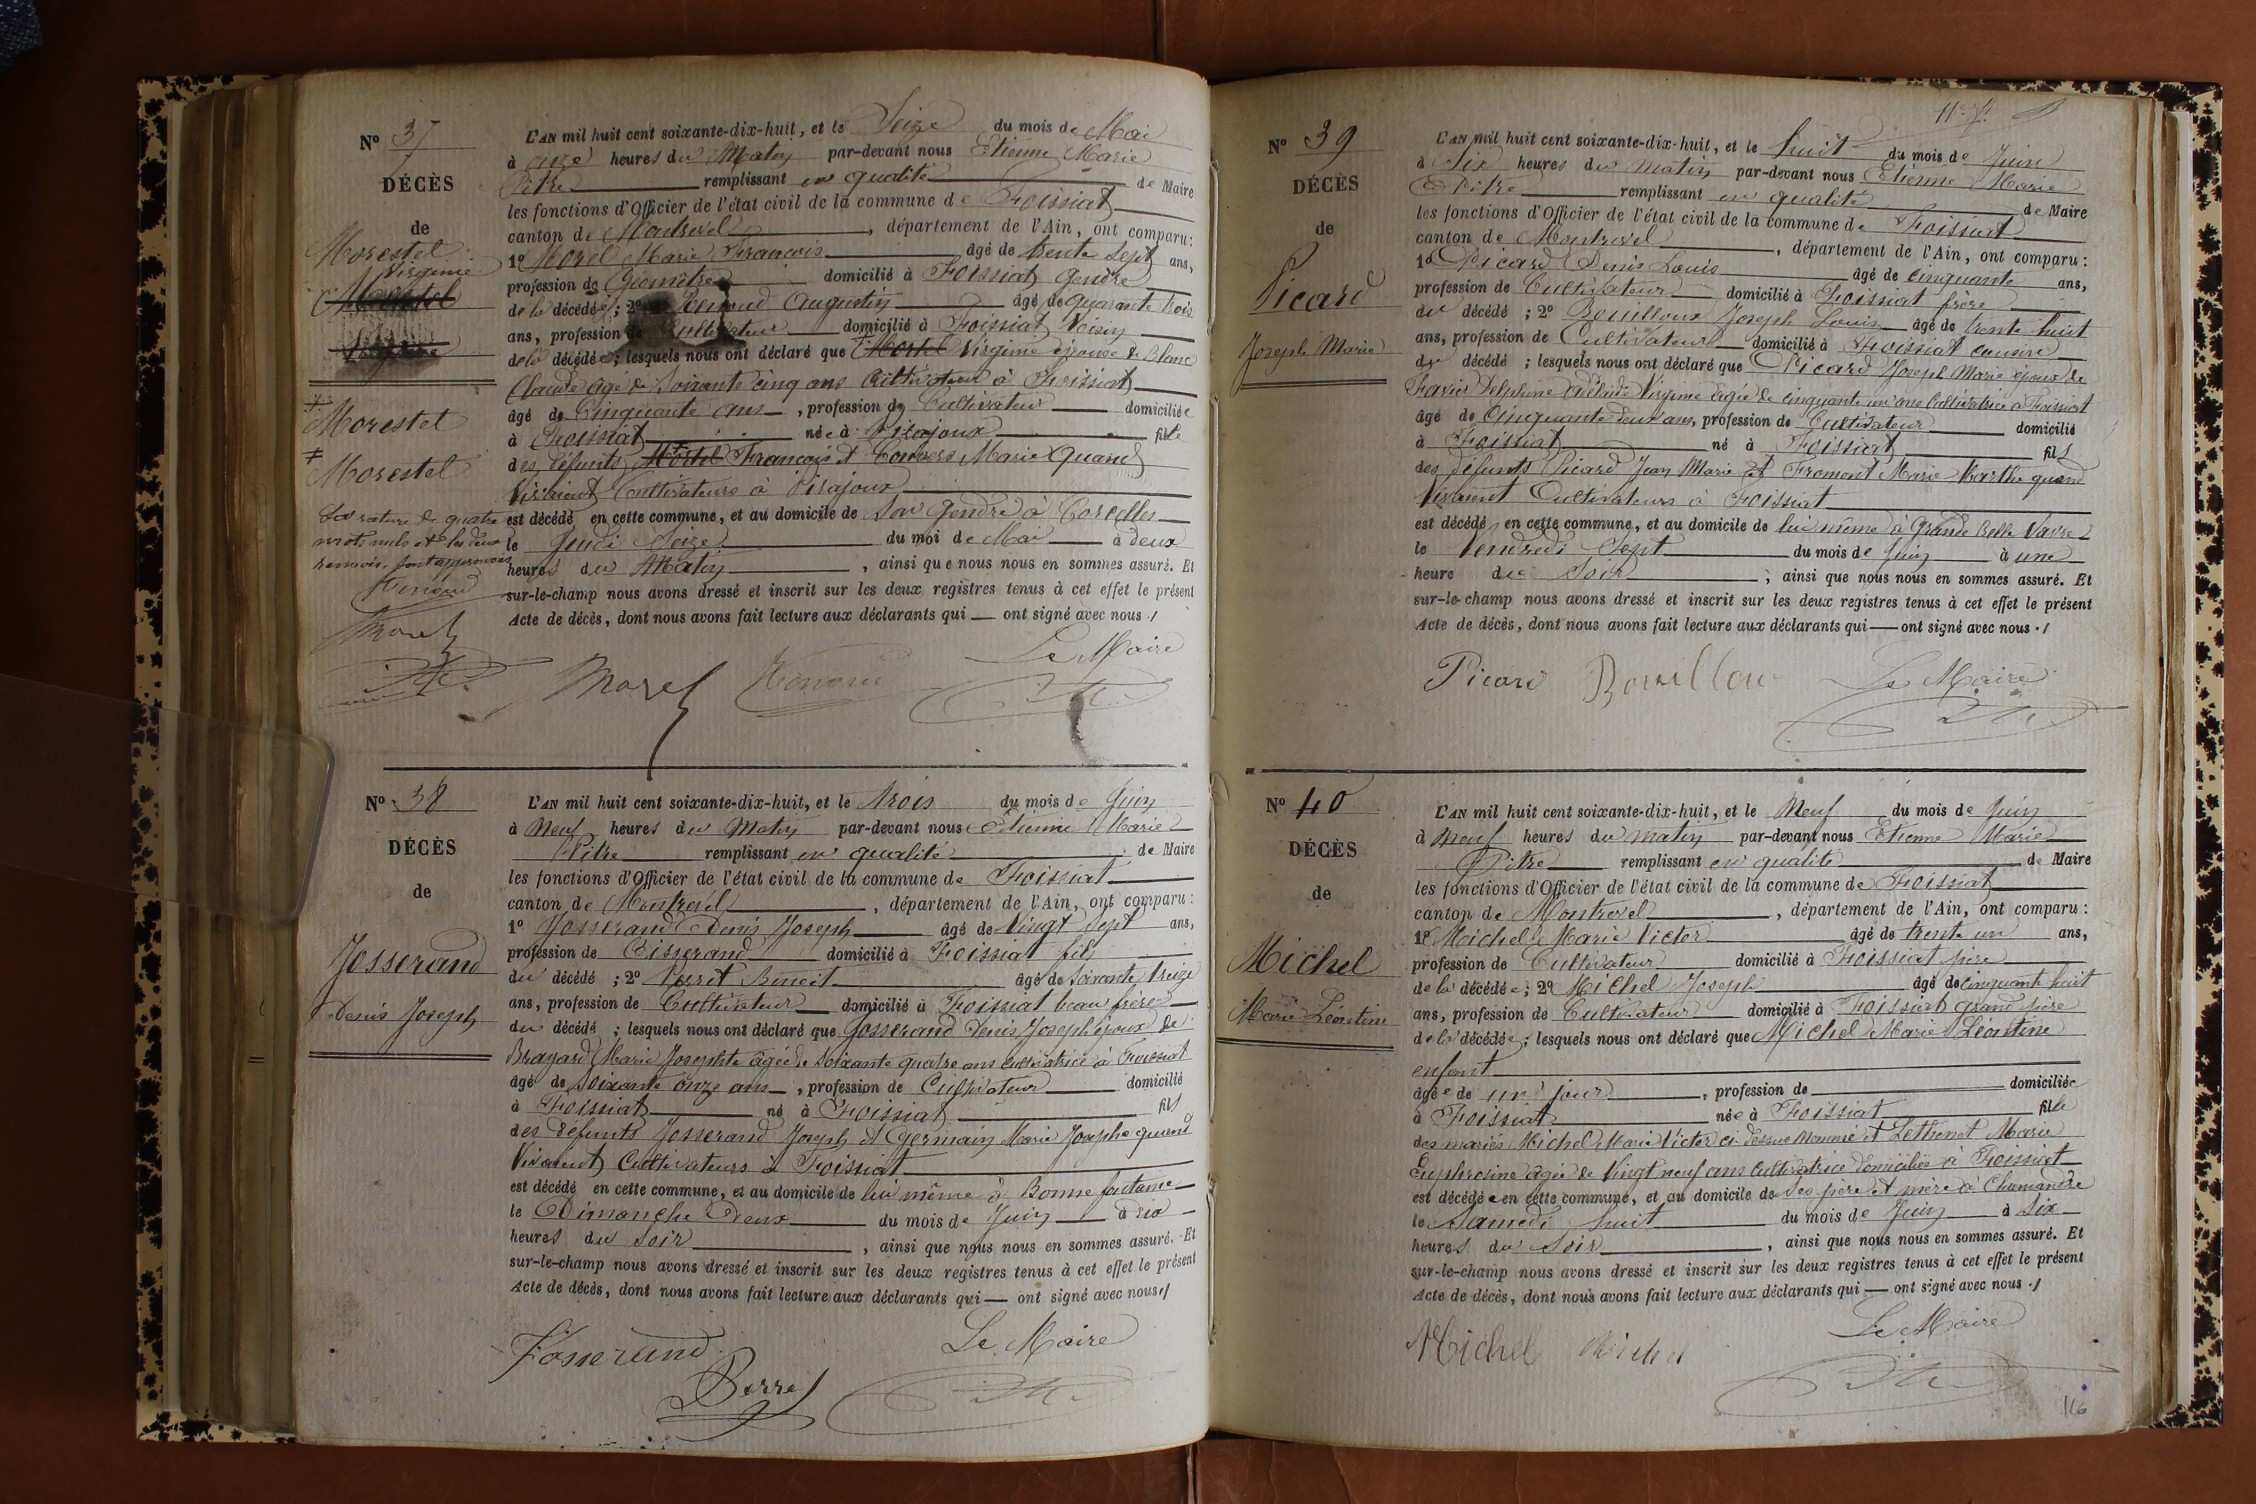 No 37
DÉCÈS
de
Morestel
Virginie
Morestel
Morestel
L'AN mil huit cent soixante-dix-huit, et le Seize du mois de Mai
à onze heures du Matin par-devant nous Etienne Marie
Pitre remplissant en qualité de Maire
les fonctions d'Officier de l'état civil de la commune de Foissiat
canton de Montrevel, département de l'Ain, ont comparu:
1o Morel Marie François âgé de trente Sept ans,
profession de Géomètre domicilié à Foissiat gendre
de la décédée; 2o Augustin âgé de quarante trois
ans, profession de Cultivateur domicilié à Foissiat Voisin
de la décédée; lesquels nous ont déclaré que Virginie épouse de Blanc
Claude âgé de Soixante cinq ans Cultivateur à Foissiat
âgé de Cinquante ans, profession de Cultivateur domiciliée
à Foissiat née à Pirajoux fille
des défunts François et Marie Quand
Vivaient Cultivateurs à Pirajoux
est décédé en cette commune, et au domicile de Son Gendre à Corcelles
le Jeudi Seize du moi de Mai à deux
heures du Matin, ainsi que nous nous en sommes assuré. Et
sur-le-champ nous avons dressé et inscrit sur les deux registres tenus à cet effet le présent
Acte de décès, dont nous avons fait lecture aux déclarants qui — ont signé avec nous
Les rature de quatre
mots nuls et les deux
renvois sont approuvés
Morel
Le Maire
Morel
No 38
DÉCÈS
de
Josserand
Denis Joseph
L'AN mil huit cent soixante-dix-huit, et le trois du mois de Juin
à Neuf heures du Matin par-devant nous Etienne Marie
Pitre remplissant en qualité de Maire
les fonctions d'Officier de l'état civil de la commune de Foissiat
canton de Montrevel, département de l'Ain, ont comparu:
1o Josserand Denis Joseph âgé de Vingt Sept ans,
profession de Tisserand domicilié à Foissiat fils
du décédé; 2o Benoit âgé de Soixante treize
ans, profession de Cultivateur domicilié à Foissiat beau frère
du décédé; lesquels nous ont déclaré que Josserand Denis Joseph époux de
Brayard Marie Josephte âgée de Soixante quatre ans Cultivatrice à Foissiat
âgé de Soixante onze ans, profession de Cultivateur domicilié
à Foissiat né à Foissiat fils
des défunts Josserand Joseph et Germain Marie Josephe quand
Vivaient Cultivateurs à Foissiat
est décédé en cette commune, et au domicile de lui même à Bonne fontaine
le Dimanche Deux du mois de Juin à six
heures du Soir, ainsi que nous nous en sommes assuré. Et
sur-le-champ nous avons dressé et inscrit sur les deux registres tenus à cet effet le présent
Acte de décès, dont nous avons fait lecture aux déclarants qui — ont signé avec nous
Josserand
Le Maire
No 39
DÉCÈS
de
Picard
Joseph Marie
L'AN mil huit cent soixante-dix-huit, et le huit du mois de Juin
à Six heures du matin par-devant nous Etienne Marie
Pitre remplissant en qualité de Maire
les fonctions d'Officier de l'état civil de la commune de Foissiat
canton de Montrevel, département de l'Ain, ont comparu:
1o Picard Denis Louis âgé de cinquante ans,
profession de Cultivateur domicilié à Foissiat frère
du décédé; 2o Bouilloux Joseph Louis âgé de trente huit
ans, profession de Cultivateur domicilié à Foissiat cousin
du décédé; lesquels nous ont déclaré que Picard Joseph Marie époux de
Favier Delphine Virginie âgée de cinquante un ans Cultivatrice à Foissiat
âgé de Cinquante deux ans, profession de Cultivateur domicilié
à Foissiat né à Foissiat fils
des défunts Picard Jean Marie et Fromont Marie Marthe quand
Vivaient Cultivateurs à Foissiat
est décédé en cette commune, et au domicile de lui même à Grande Belle Vavre
le Vendredi Sept du mois de Juin à une
heure du Soir, ainsi que nous nous en sommes assuré. Et
sur-le-champ nous avons dressé et inscrit sur les deux registres tenus à cet effet le présent
Acte de décès, dont nous avons fait lecture aux déclarants qui — ont signé avec nous
Picard Bouilloux Le Maire
No 40
DÉCÈS
de
Michel
Marie Léontine
L'AN mil huit cent soixante-dix-huit, et le Neuf du mois de Juin
à Neuf heures du matin par-devant nous Etienne Marie
Pitre remplissant en qualité de Maire
les fonctions d'Officier de l'état civil de la commune de Foissiat
canton de Montrevel, département de l'Ain, ont comparu:
1o Michel Marie Victor âgé de trente un ans,
profession de Cultivateur domicilié à Foissiat père
de la décédée; 2o Michel Joseph âgé de cinquante huit
ans, profession de Cultivateur domicilié à Foissiat grand père
de la décédée; lesquels nous ont déclaré que Michel Marie Léontine
enfant
âgée de un jour, profession de domiciliée
à Foissiat née à Foissiat fille
des mariés Michel Marie Victor ci-dessus nommé et Marie
Euphrosine âgée de Vingt neuf ans Cultivatrice domiciliée à Foissiat
est décédée en cette commune, et au domicile de Ses père et mère à Chamandre
le Samedi huit du mois de Juin à Six
heures du Soir, ainsi que nous nous en sommes assuré. Et
sur-le-champ nous avons dressé et inscrit sur les deux registres tenus à cet effet le présent
Acte de décès, dont nous avons fait lecture aux déclarants qui — ont signé avec nous
Le Maire
Michel Michel
116